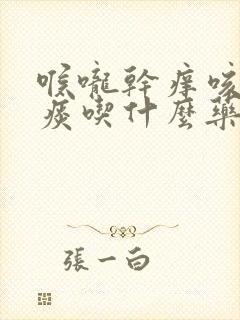 喉嚨幹痒咳
痰喫什麼藥
張一白